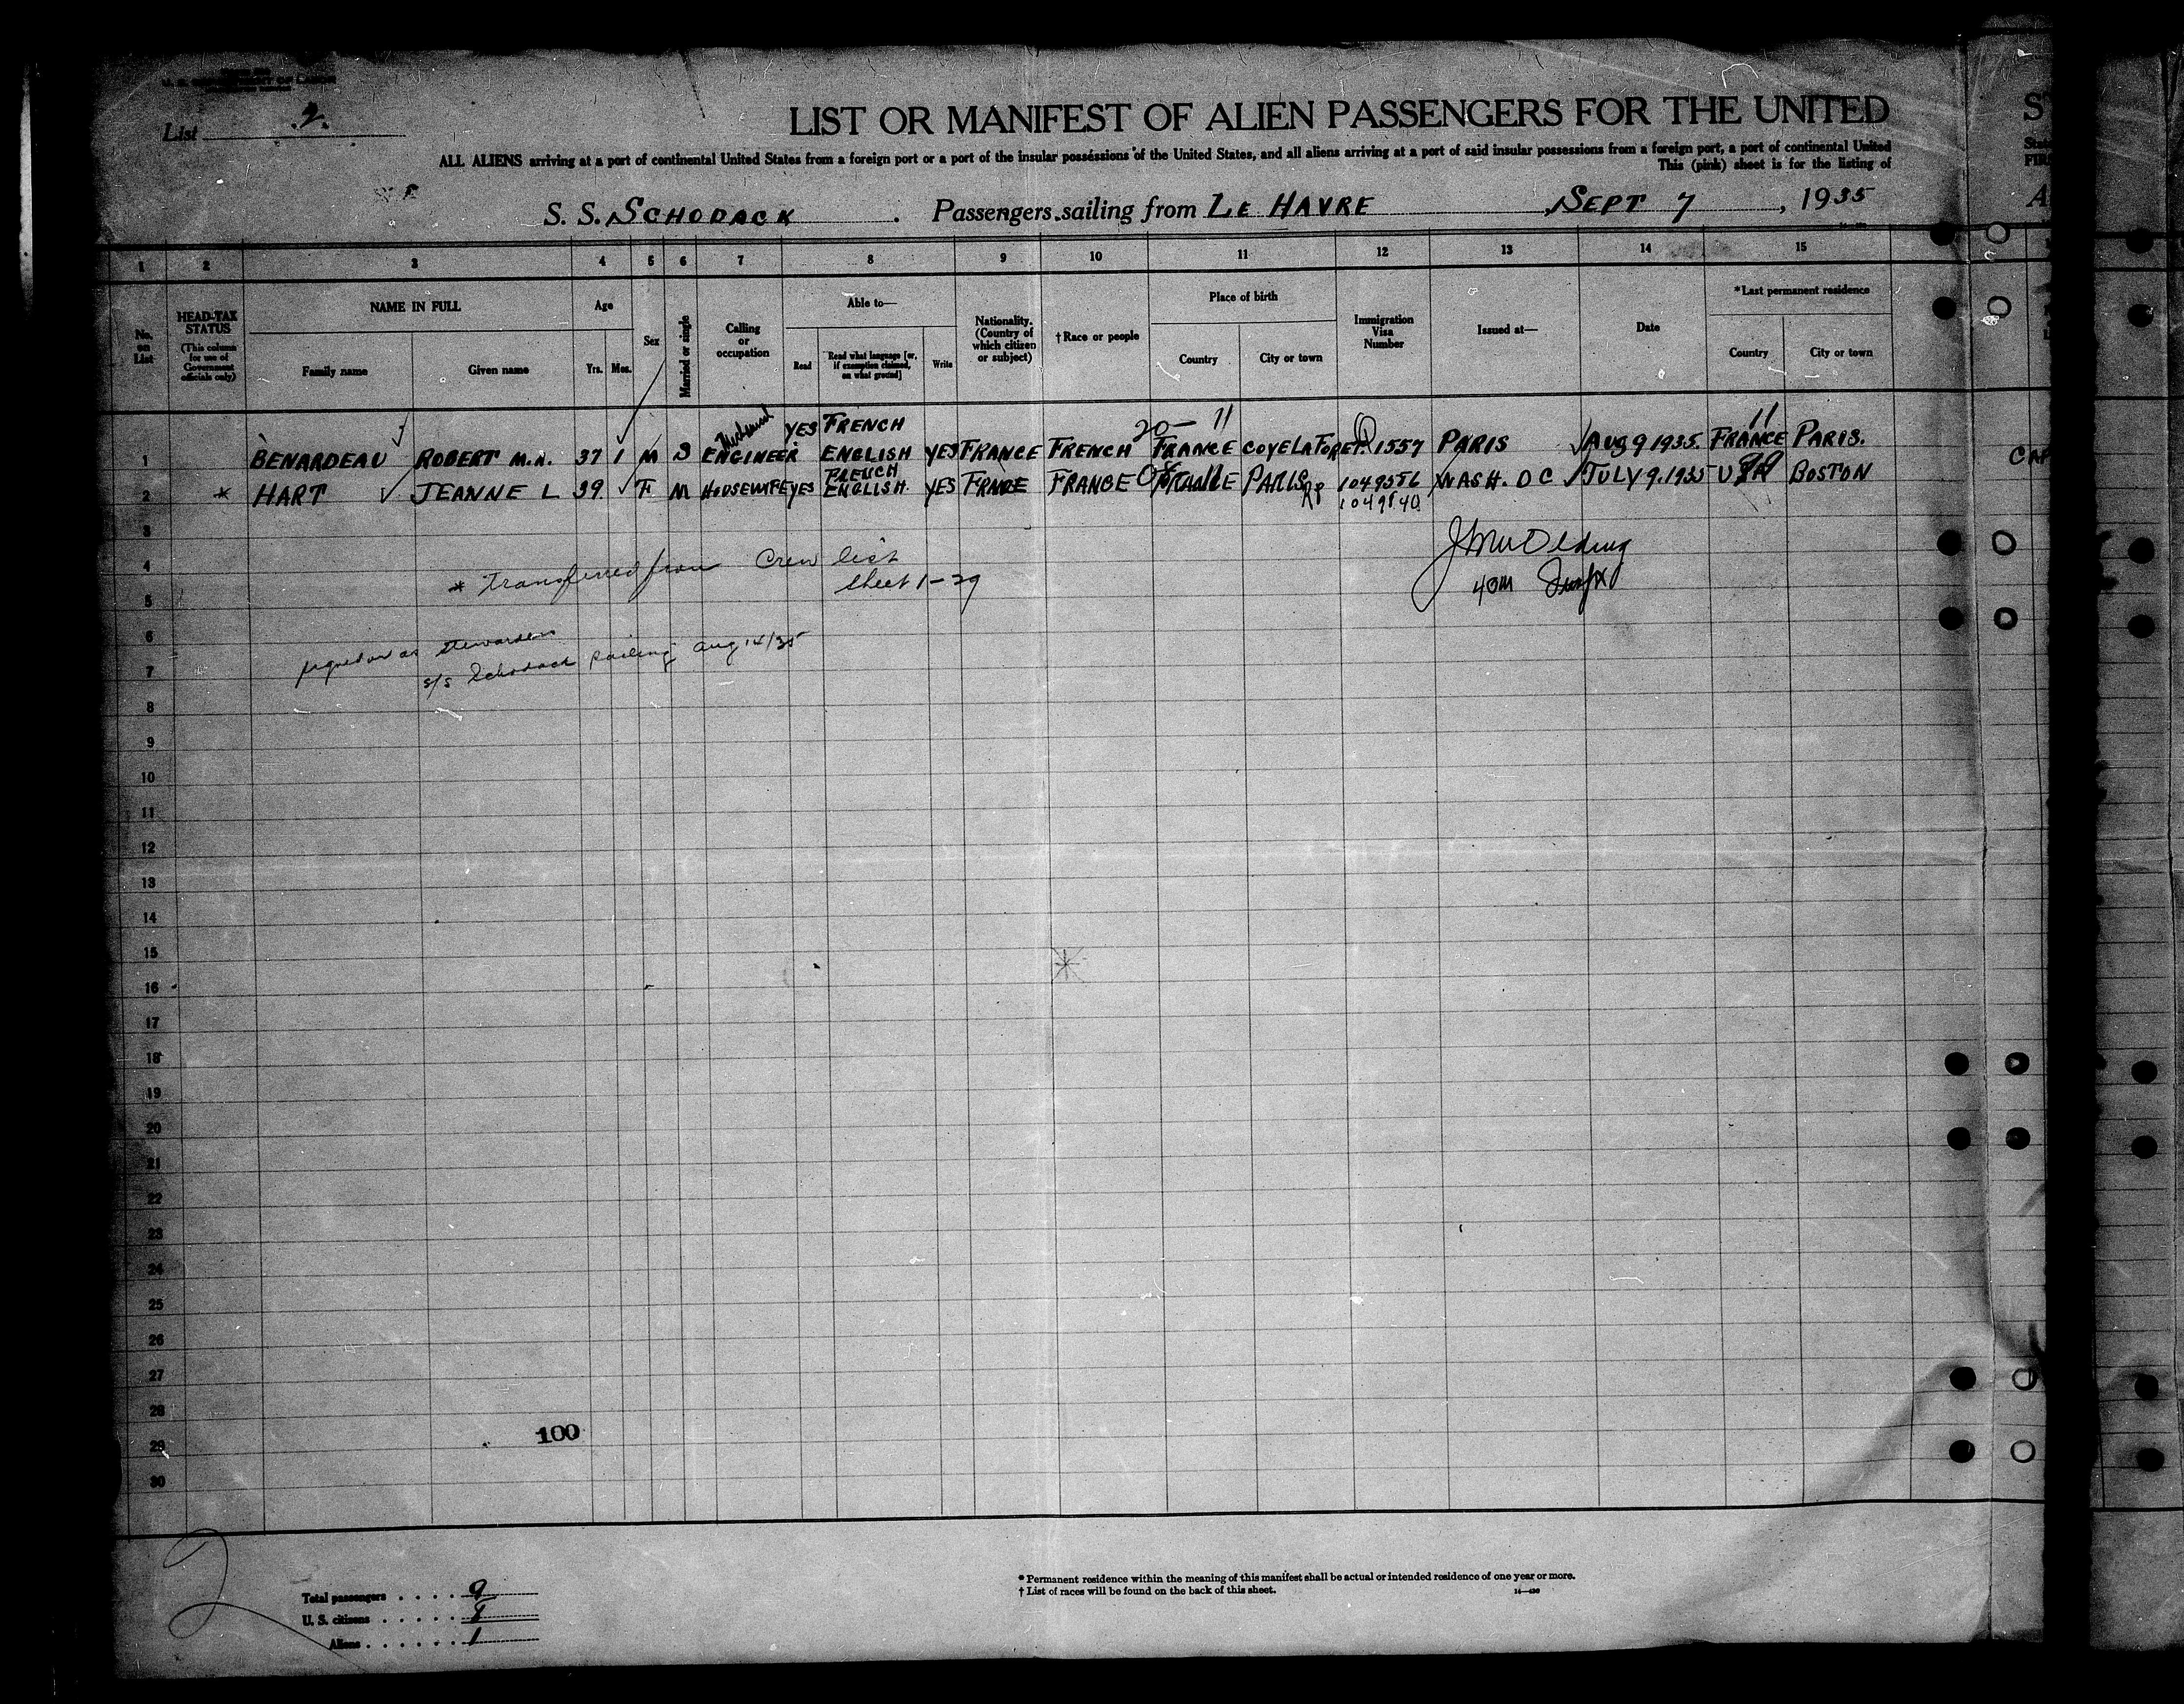 U. S. DEPARTMENT OF LABOR
List 2.
LIST OR MANIFEST OF ALIEN PASSENGERS FOR THE UNITED
ALL ALIENS arriving at a port of continental United States from a foreign port or a port of the insular possessions of the United States, and all aliens arriving at a port of said insular possessions from a foreign port, a port of continental United
This (pink) sheet is for the listing of
S. S. SCHODACK . Passengers sailing from LE HAVRE , SEPT 7 , 1935
1 2 3 4 5 6 7 8 9 10 11 12 13 14 15
No. on List
HEAD-TAX STATUS (This column for use of Government officials only)
NAME IN FULL Family name Given name
Age Yrs. Mos.
Sex
Married or single
Calling or occupation
Able to— Read Read what language [or, if exemption claimed, on what ground] Write
Nationality. (Country of which citizen or subject)
† Race or people
Place of birth Country City or town
Immigration Visa Number
Issued at—
Date
* Last permanent residence Country City or town
20— 11 11
1 BENARDEAU ROBERT M.A. 37 1 M S ENGINEER YES FRENCH ENGLISH YES FRANCE FRENCH FRANCE COYE LA FORET. 1557 PARIS AUG 9 1935. FRANCE PARIS.
2 * HART JEANNE L 39 F M HOUSEWIFE YES FRENCH ENGLISH. YES FRANCE FRANCE FRANCE PARIS RP 1049556 WASH. DC JULY 9. 1935 BOSTON
3
4 * Transferred from Crew list
sheet 1-29
40m
5
6 signed on as stewardess
7 s/s Schodack sailing Aug 14/35
8
9
10
11
12
13
14
15
16
17
18
19
20
21
22
23
24
25
26
27
28
29 100
30
Total passengers . . . . 9
U. S. citizens . . . . . 8
Aliens . . . . . . 1
* Permanent residence within the meaning of this manifest shall be actual or intended residence of one year or more.
† List of races will be found on the back of this sheet.